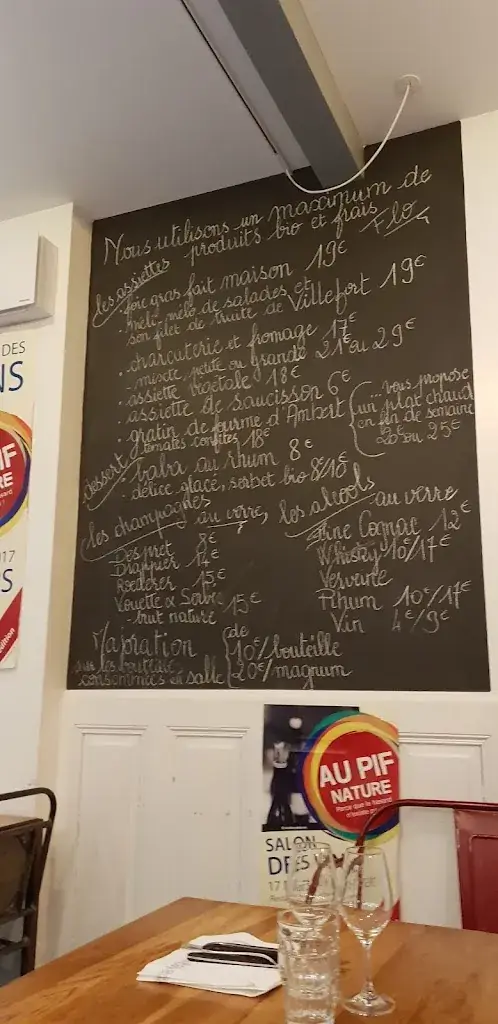 Nous utilisons un maximum de
produits bio et frais
Flo
les assiettes
• foie gras fait maison 19€
• méli-mélo de salades et
son filet de truite de Villefort 19€
• charcuterie et fromage 17€
• mixte petite ou grande 21€ ou 29€
• assiette végétale 18€
• assiette de saucisson 6€
• gratin de fourme d'Ambert
tomates confites 18€
... vous propose
un plat chaud
en fin de semaine
ou 25€
dessert
• baba au rhum 8€
• délice glacé, sorbet bio 8/10€
les champagnes
au verre,
Despret 8€
Drappier 14€
Roederer 15€
Vouette & Sorbée
brut nature 15€
les alcools
au verre
Fine Cognac 12€
Whisky 10€/17€
Verveine
Rhum 10€/17€
Vin 4€/9€
Majoration
sur les bouteilles
consommées en salle
de
10€/bouteille
20€/magnum
DES
NS
IF
RE
017
S
AU PIF
NATURE
SALON
DES
17